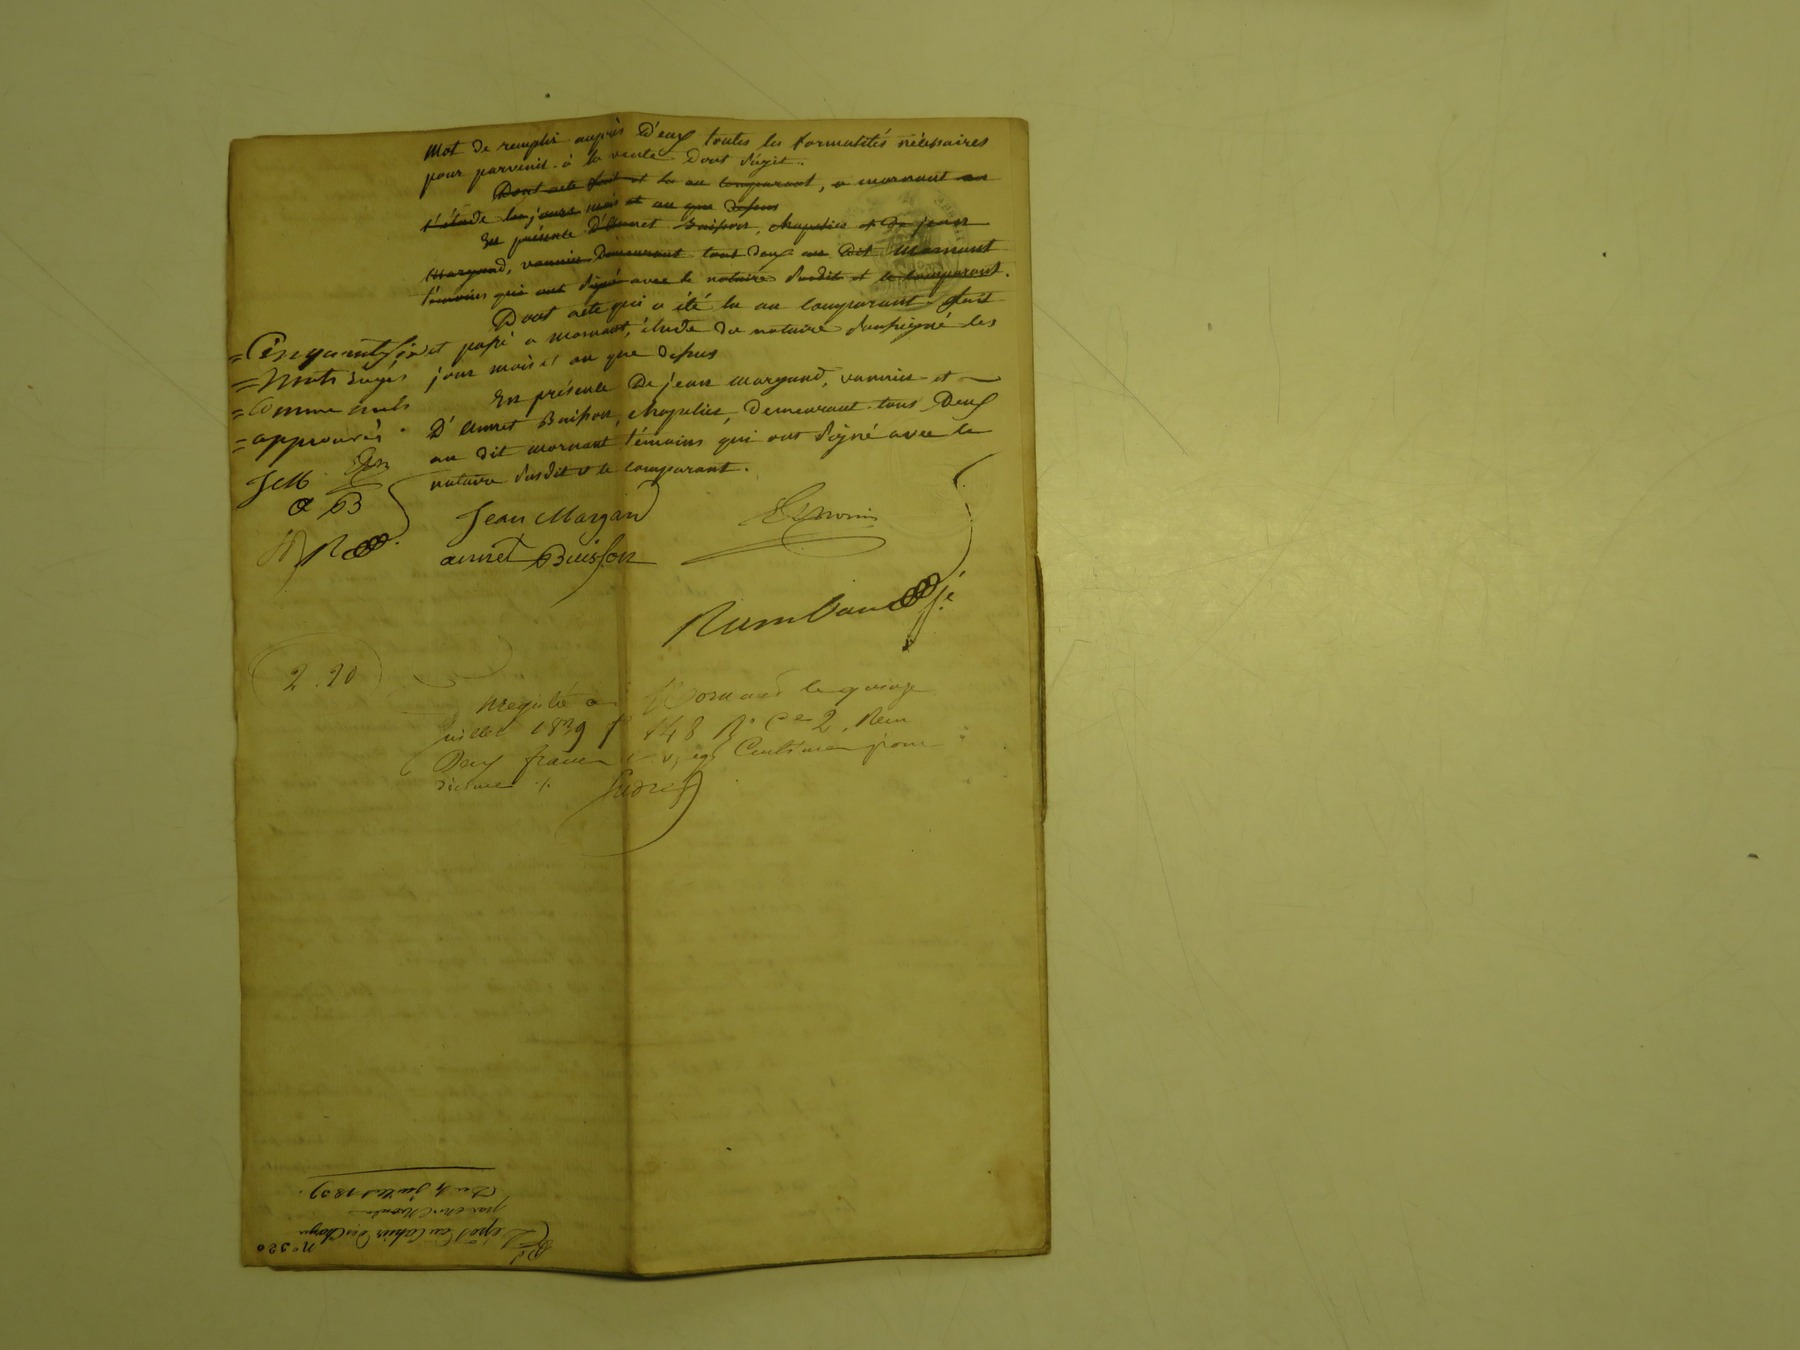 Mot de remplir auprès d'eux toutes les formalités nécessaires
pour parvenir à la vente dont s'agit.
Dont acte fait et lu au comparant, a mornant en
l'étude les jours mois et an que dessus
En présence d'Annet Buisson, chapelier et de jean
Margand, vannier demeurant tous deux au dit Mornant
témoins qui ont signé avec le notaire susdit et le comparant.
Dont acte qui a été lu au comparant fait
et passé a mornant, étude du notaire soussigné les
jour mois et an que dessus
En présence de jean margand, vannier et
d'Annet Buisson, chapelier, demeurant tous deux
au dit mornant témoins qui ont signé avec le
notaire susdit et le comparant.
= Cinquante six
= mots rayés
= comme nuls
= approuvés
JM
a B
Jean Margand
annet Buisson
2.20
Enregistré à Mornant le quinze
Juillet 1839 f° 148 R° Ce 2. Reçu
Deux francs et vingt Centimes pour
décime
Dépôt du Cahier des Charges
par
Du 4 juillet 1839.
n° 320